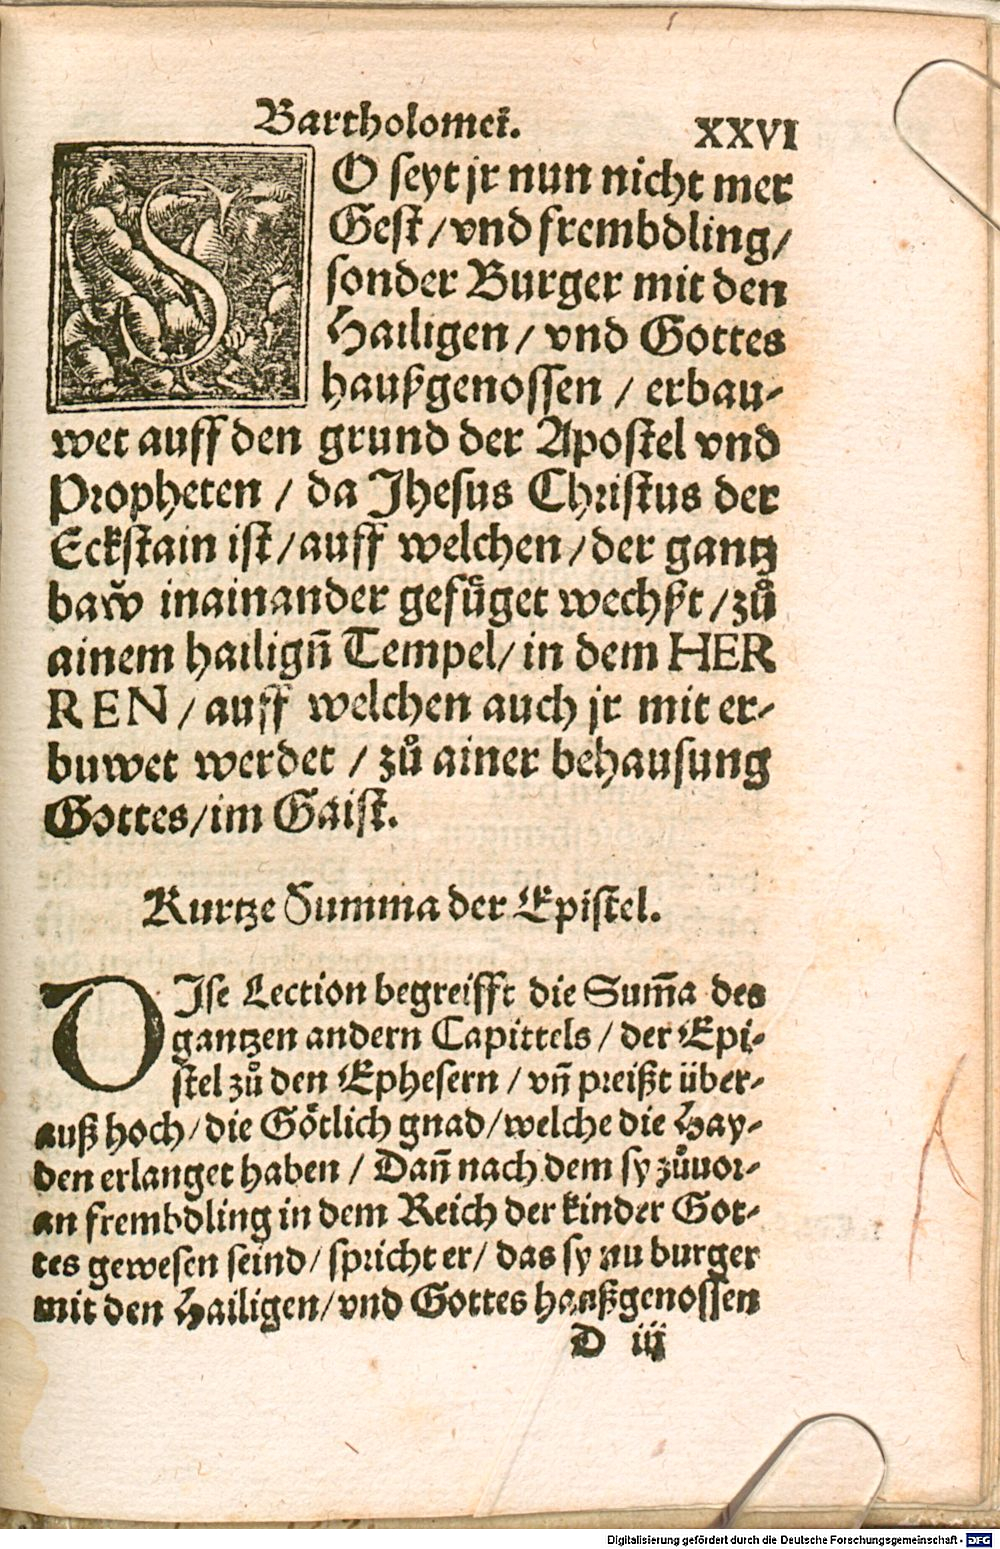 Bartholomei. XXVI
SO seyt jr nun nicht mer
Gest / vnd frembdling /
sonder Burger mit den
Hailigen / vnd Gottes
haußgenossen / erbau-
wet auff den grund der Apostel vnd
Propheten / da Jhesus Christus der
Eckstain ist / auff welchen / der gantz
baw̆ inainander gefuͤget wechßt / zuͦ
ainem hailigñ Tempel / in dem HER
REN / auff welchen auch jr mit er-
buwet werdet / zuͦ ainer behausung
Gottes / im Gaist.
Kurtze Summa der Epistel.
DJse Lection begreifft die Sum̃a des
gantzen andern Capittels / der Epi-
stel zuͦ den Ephesern / vñ preißt über-
auß hoch / die Goͤtlich gnad / welche die Hay-
den erlanget haben / Dañ nach dem sy zuͦuor-
an frembdling in dem Reich der kinder Got-
tes gewesen seind / spricht er / das sy nu burger
mit den Hailigen / vnd Gottes haußgenossen
D iij
Digitalisierung gefördert durch die Deutsche Forschungsgemeinschaft - DFG